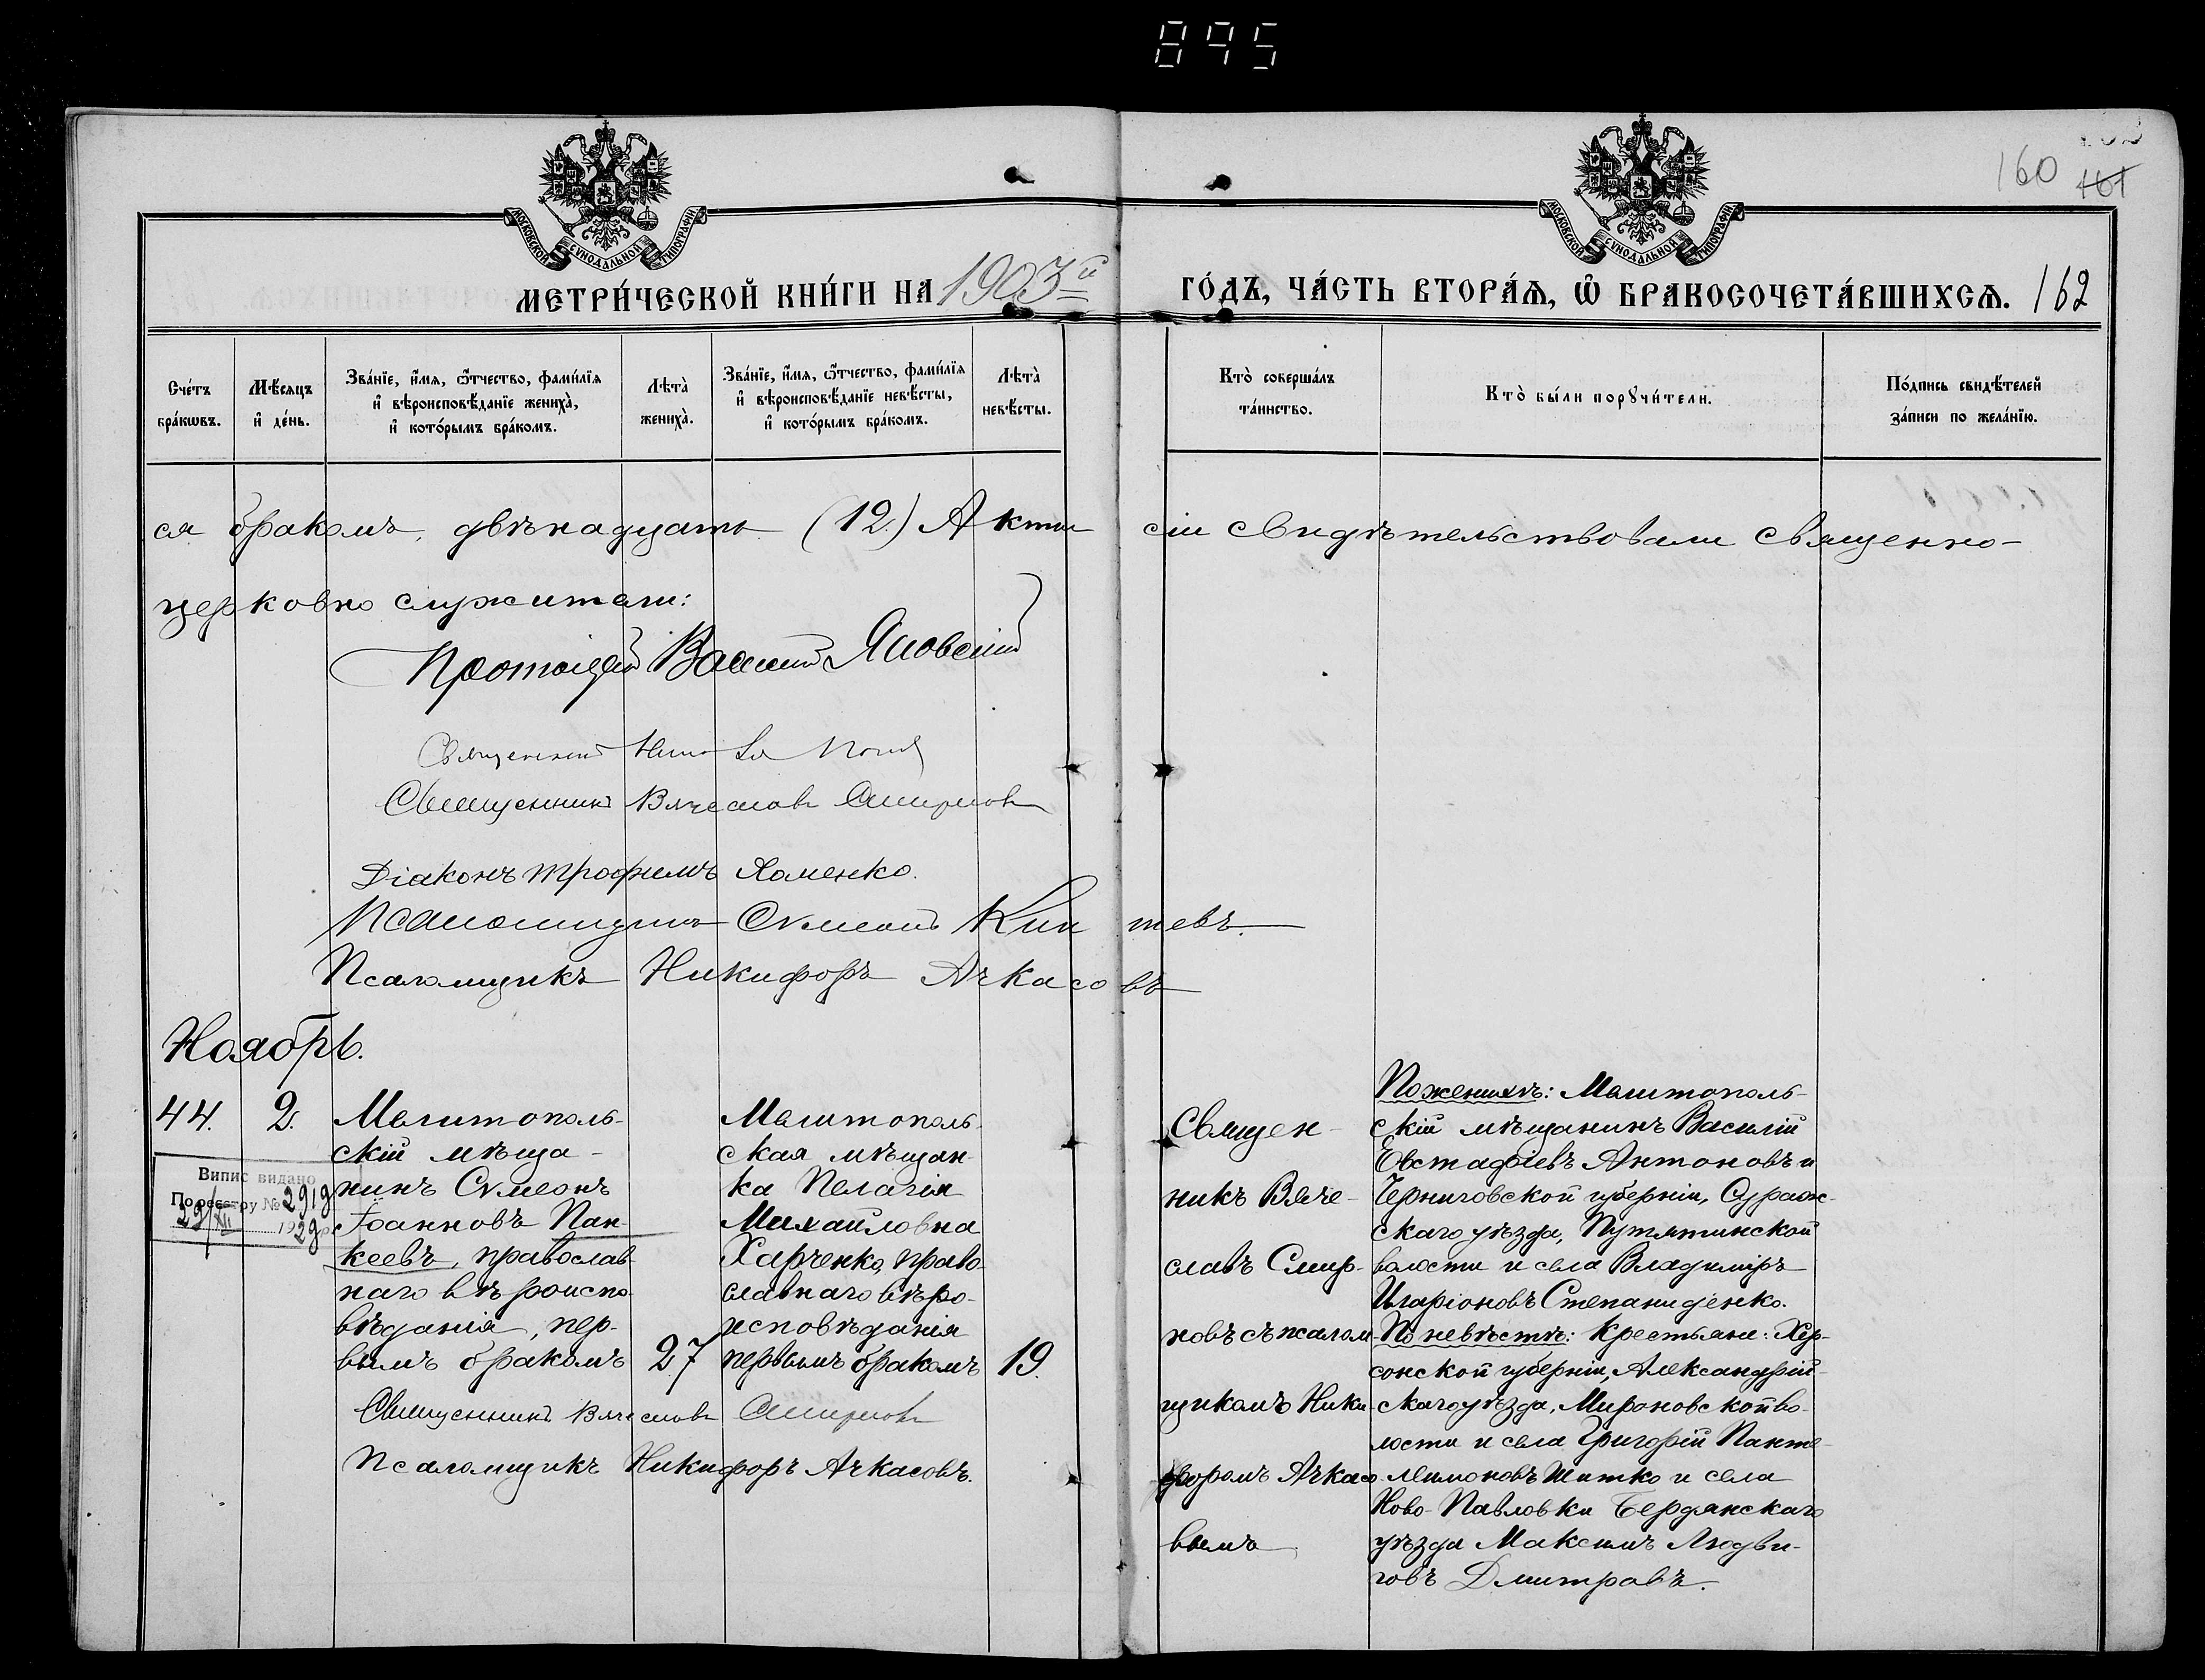 895
160 161
МОСКОВСКОЙ СѴНОДАЛЬНОЙ ТИПОГРАФІИ
МОСКОВСКОЙ СѴНОДАЛЬНОЙ ТИПОГРАФІИ
МЕТРИ́ЧЕСКОЙ КНИ́ГИ НА 1903й ГО́ДЪ, ЧА́СТЬ ВТОРА́Ѧ, Ѡ҆ БРАКОСОЧЕТА́ВШИХСѦ. 162
Сче́тъ
бра́кѡвъ.
Мѣ́сяцъ
и҆ де́нь.
Зва́нїе, и҆́мя, ѻ҆́тчество, фами́лїя
и҆ вѣроисповѣ́данїе жениха̀,
и҆ кото́рымъ бра́комъ.
Лѣта̀
жениха̀.
Зва́нїе, и҆́мя, ѻ҆́тчество, фами́лїя
и҆ вѣроисповѣ́данїе невѣ́сты,
и҆ кото́рымъ бра́комъ.
Лѣта̀
невѣ́сты.
Кто̀ соверша́лъ
та́инство.
Кто̀ бы́ли порꙋчи́тели.
По́дпись свидѣ́телей
за́писи по жела́нїю.
ся бракомъ двѣнадцать (12.) Акты сіи свидѣтельствовали священно-
церковно служители:
Протоіерей Василій Яновскій
Священникъ
Священникъ Вячеславъ Смирновъ
Діаконъ Трофимъ Хоменко.
Псаломщикъ Сѵмеонъ
Псаломщикъ Никифоръ Ачкасовъ
Ноябрь.
44.
2.
Мелитополь-
скій мѣща-
нинъ Сѵмеонъ
Іоанновъ Пан-
кеевъ, православ-
наго вѣроиспо-
вѣданія, пер-
вымъ бракомъ
27
Мелитополь-
ская мѣщан-
ка Пелагія
Михайловна
Харченко, право-
славнаго вѣро-
исповѣданія
первымъ бракомъ
19.
Випис видано
По реєстру № 2919
29/XII 1929 р.
Священникъ Вячеславъ Смирновъ
Псаломщикъ Никифоръ Ачкасовъ.
Священ-
никъ Вяче-
славъ Смир-
новъ съ псалом-
щикомъ Ники-
форомъ Ачкасо-
вымъ
По женихѣ: Мелитополь-
скій мѣщанинъ Василій
Евстафіевъ Антоновъ и
Черниговской губерніи, Сураж-
скаго уѣзда, Путятинской
волости и села Владиміръ
Иларіоновъ Степаниденко.
По невѣстѣ: Крестьяне: Хер-
сонской губерніи, Александрій-
скаго уѣзда, Мироновской во-
лости и села Григорій Панте-
леимоновъ Шитко и села
Ново-Павловки Бердянскаго
уѣзда Максимъ Людви-
говъ Дмитровъ.